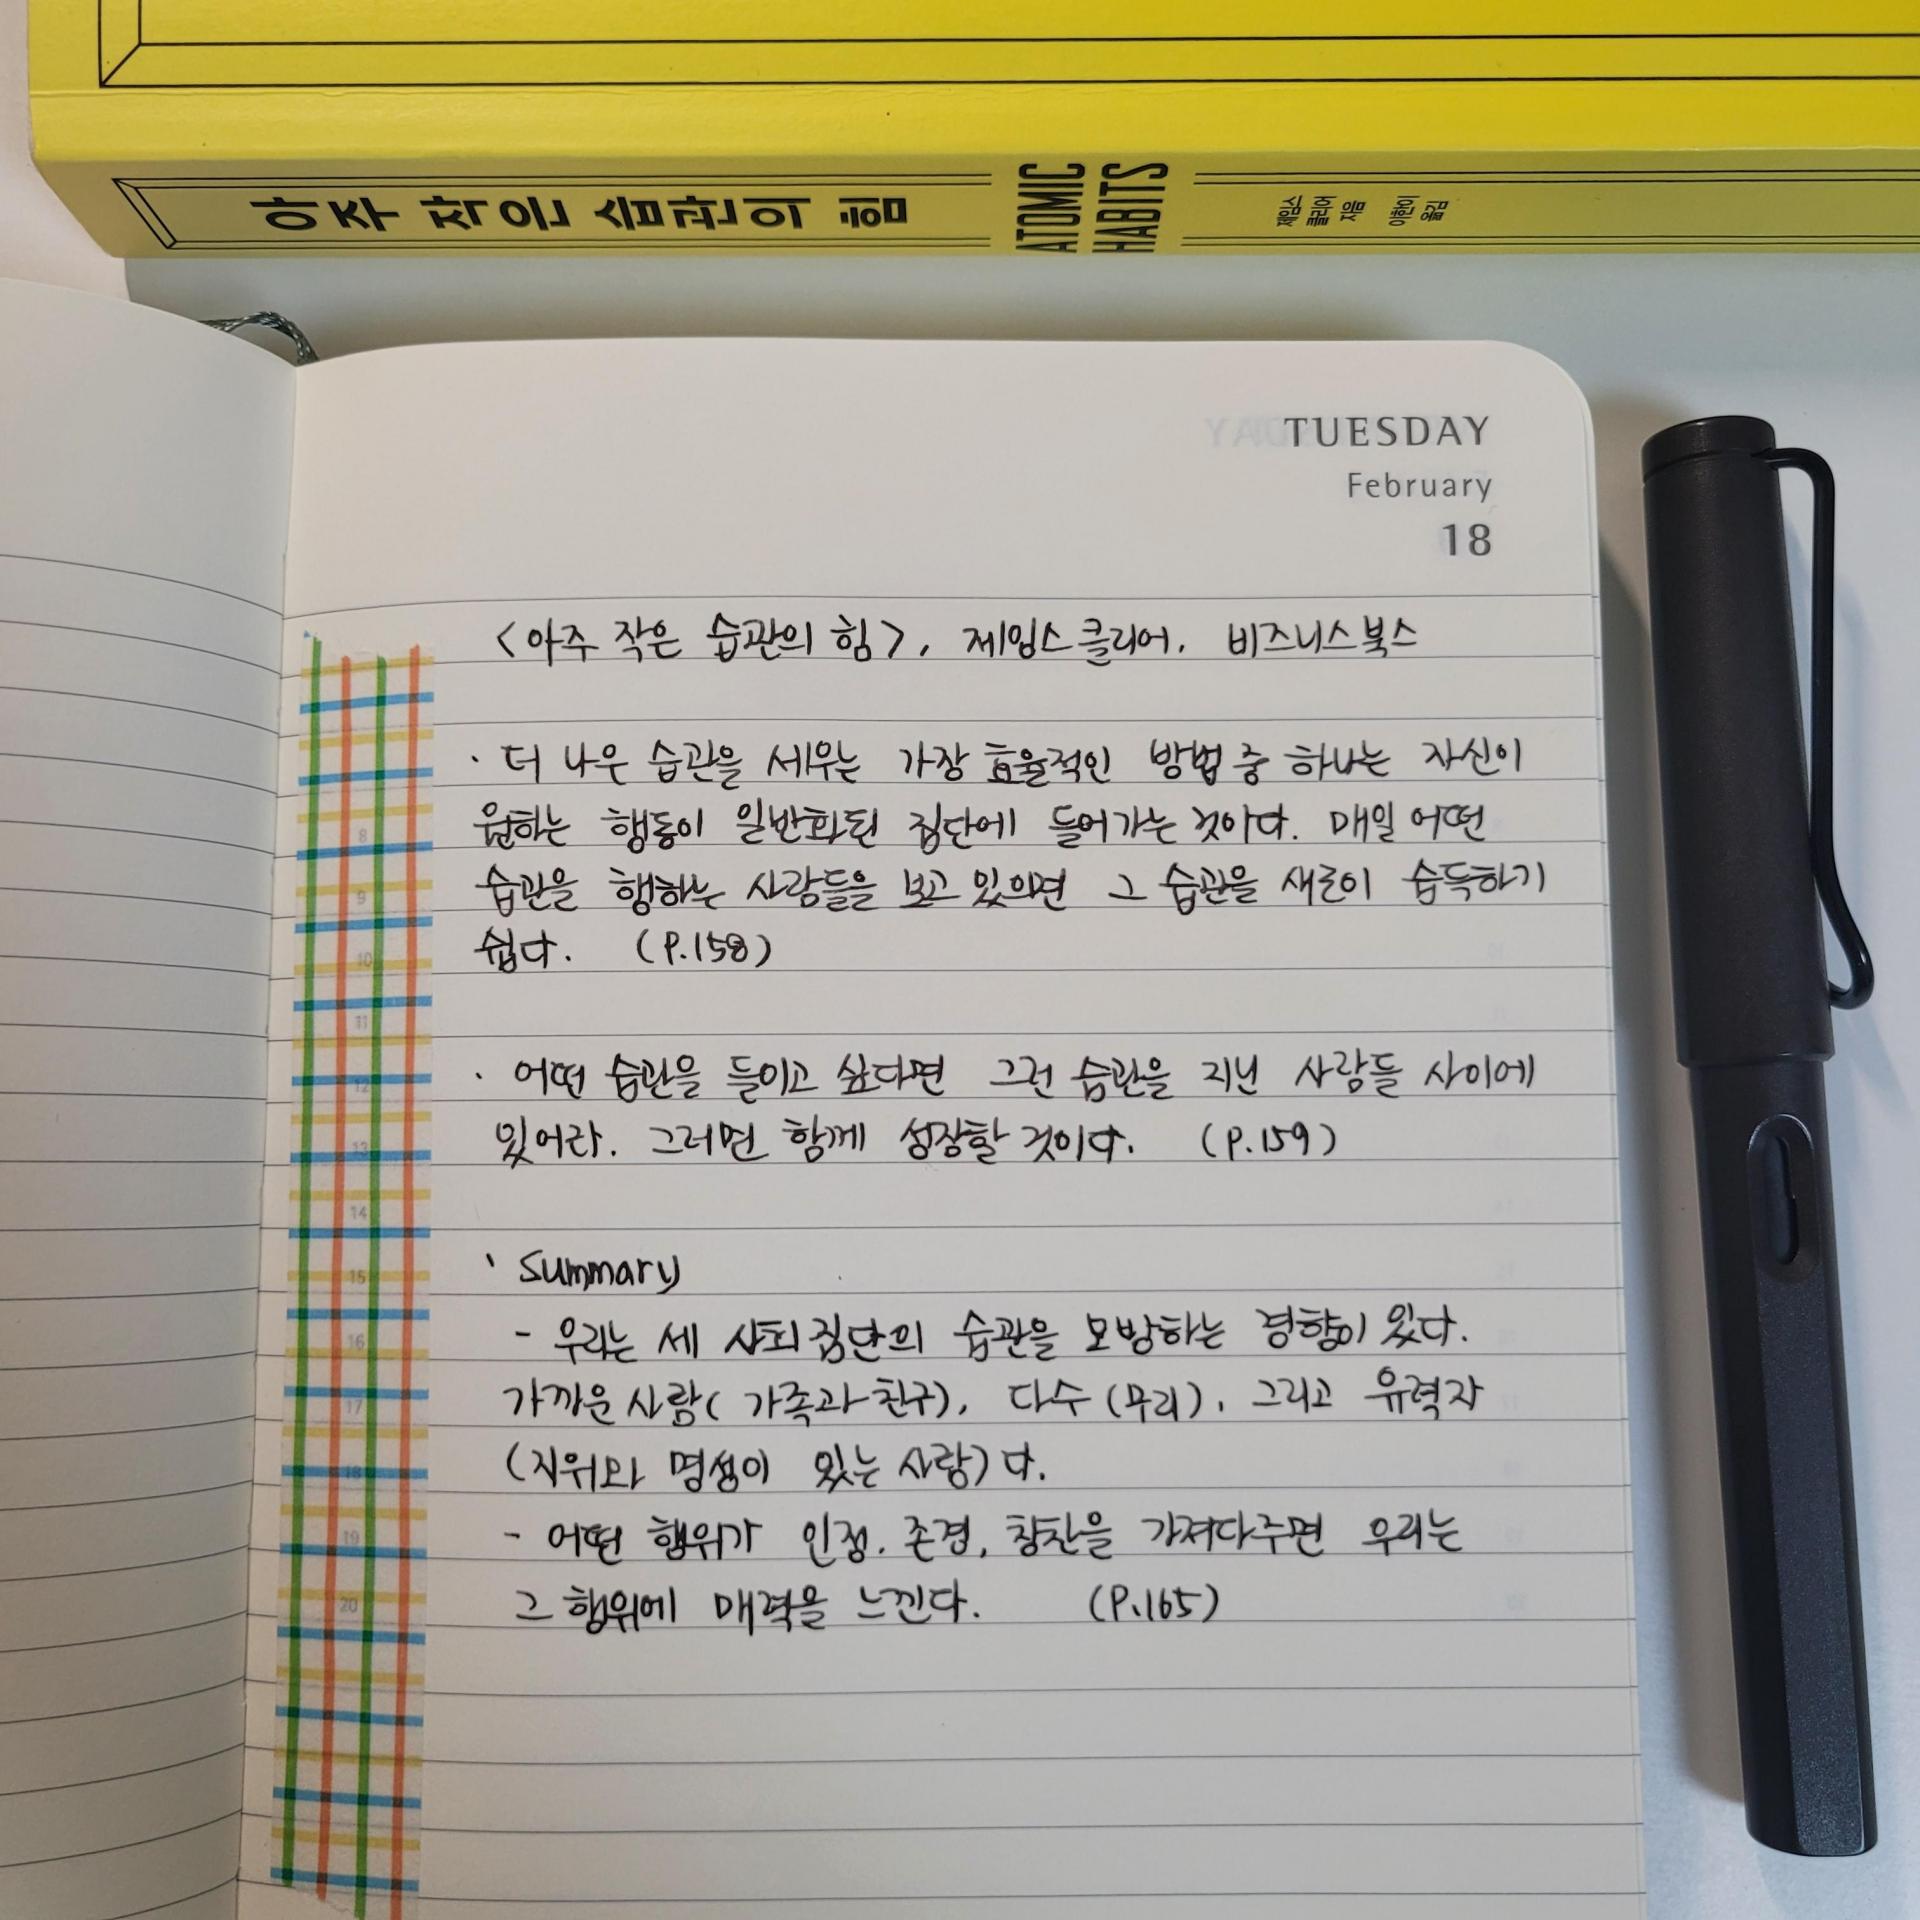 아주 작은 습관의 힘
ATOMIC
HABITS
제임스
클리어
지음
이한이
옮김
TUESDAY
February
18
<아주 작은 습관의 힘>, 제임스클리어, 비즈니스북스
· 더 나은 습관을 세우는 가장 효율적인 방법 중 하나는 자신이
원하는 행동이 일반화된 집단에 들어가는 것이다. 매일 어떤
습관을 행하는 사람들을 보고 있으면 그 습관을 새로이 습득하기
쉽다. (P.158)
· 어떤 습관을 들이고 싶다면 그런 습관을 지닌 사람들 사이에
있어라. 그러면 함께 성장할 것이다. (P.159)
· Summary
- 우리는 세 사회집단의 습관을 모방하는 경향이 있다.
가까운 사람(가족과 친구), 다수(무리), 그리고 유력자
(지위와 명성이 있는 사람)다.
- 어떤 행위가 인정, 존경, 칭찬을 가져다주면 우리는
그 행위에 매력을 느낀다. (P.165)
8
9
10
11
12
13
14
15
16
17
18
19
20